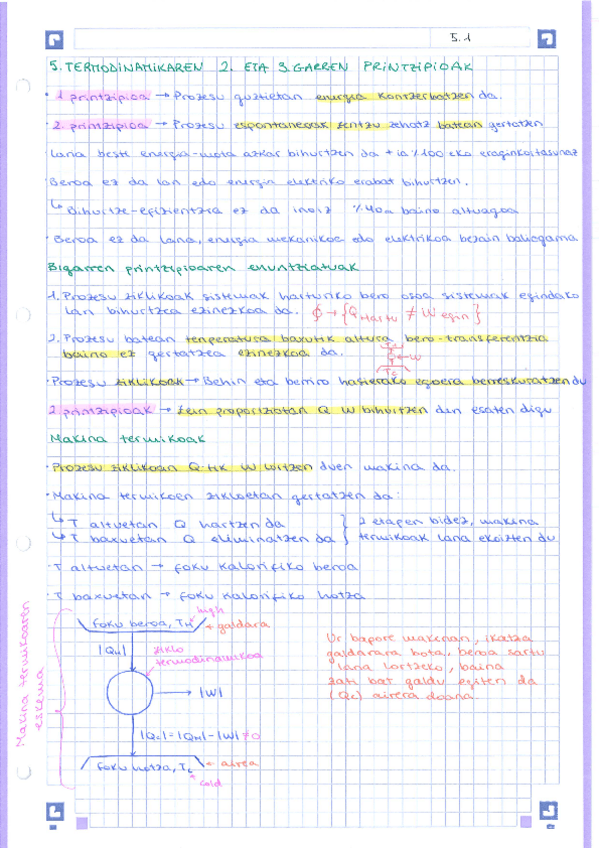 5.1
5. TERMODINAMIKAREN 2. ETA 3. GARREN PRINTZIPIOAK
· 1. printzipioa → Prozesu guztietan energia kontserbatzen da.
· 2. printzipioa → Prozesu espontaneoak zentzu zehatz batean gertatzen
· Lana beste energia-mota azkar bihurtzen da + ia %100 eko eraginkortasunaz
· Beroa ez da lan edo energia elektriko erabat bihurtzen.
↳ Bihurtze-efizientzia ez da inoiz %40a baino altuagoa
· Beroa ez da lana, energia mekanikoa edo elektrikoa bezain baliogarria
Bigarren printzipioaren enuntziatuak
1. Prozesu ziklikoak sistemak harturiko bero osoa sistemak egindako
lan bihurtzea ezinezkoa da. ∮ → {Q hartu ≠ W egin}
2. Prozesu batean tenperatura baxutik altura bero-transferentzia
baino ez gertatzea ezinezkoa da.
← W
Tc
· Prozesu ziklikoak → Behin eta berriro hasierako egoera berreskuratzen du
2. printzipioak → Zein proportziotan Q W bihurtzen den esaten digu
Makina termikoak
· Prozesu ziklikoan Q-tik W lortzen duen makina da.
· Makina termikoen zikloetan gertatzen da:
↳ T altuetan Q hartzen da
↳ T baxuetan Q eliminatzen da
} 2 etapen bidez, makina
termikoak lana ekoizten du
· T altuetan → foku kalorifiko beroa
· T baxuetan → foku kalorifiko hotza
Makina termikoaren
eskema
high
foku beroa, TH ← galdara
|QH|
ziklo
termodinamikoa
→ |W|
|Qc| = |QH| - |W| ≠ 0
foku hotza, Tc ← airea
cold
Ur bapore makinan, ikatza
galdarara bota, beroa sartu
lana lortzeko, baina
zati bat galdu egiten da
(Qc) airera doana.